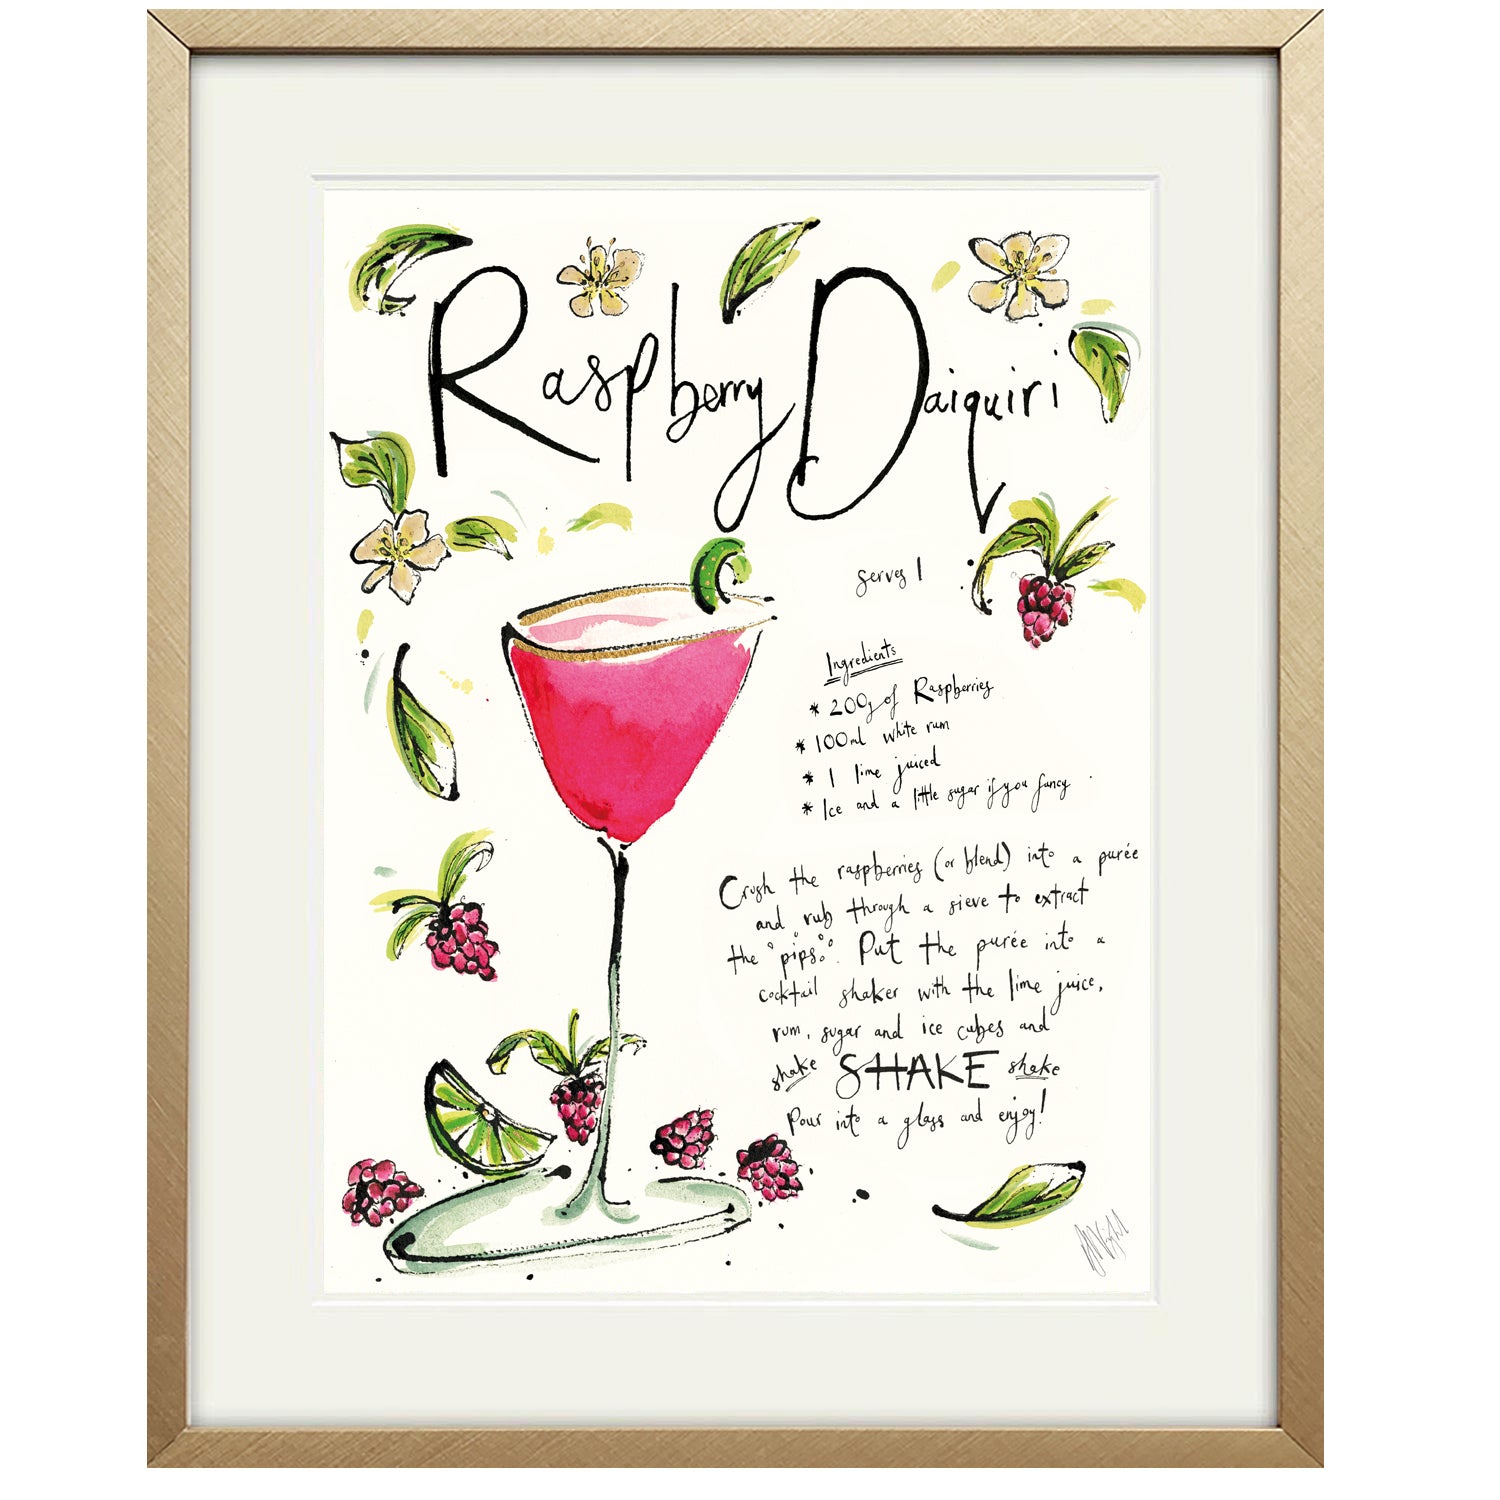 Raspberry Daiquiri
serves 1
Ingredients
* 200g of Raspberries
* 100ml white rum
* 1 lime juiced
* Ice and a little sugar if you fancy
Crush the raspberries (or blend) into a purée
and rub through a sieve to extract
the "pips". Put the purée into a
cocktail shaker with the lime juice,
rum, sugar and ice cubes and
shake SHAKE shake
Pour into a glass and enjoy!